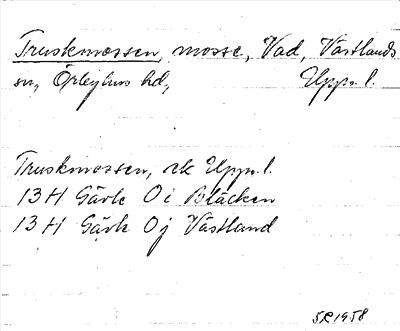 Truskmossen, mosse, Vad, Västlands
sn, Örbyhus hd, Uppl.
Truskmossen, ek Uppl.
13 H Gävle 0 i Bläcken
13 H Gävle 0 j Västland
SR 1958